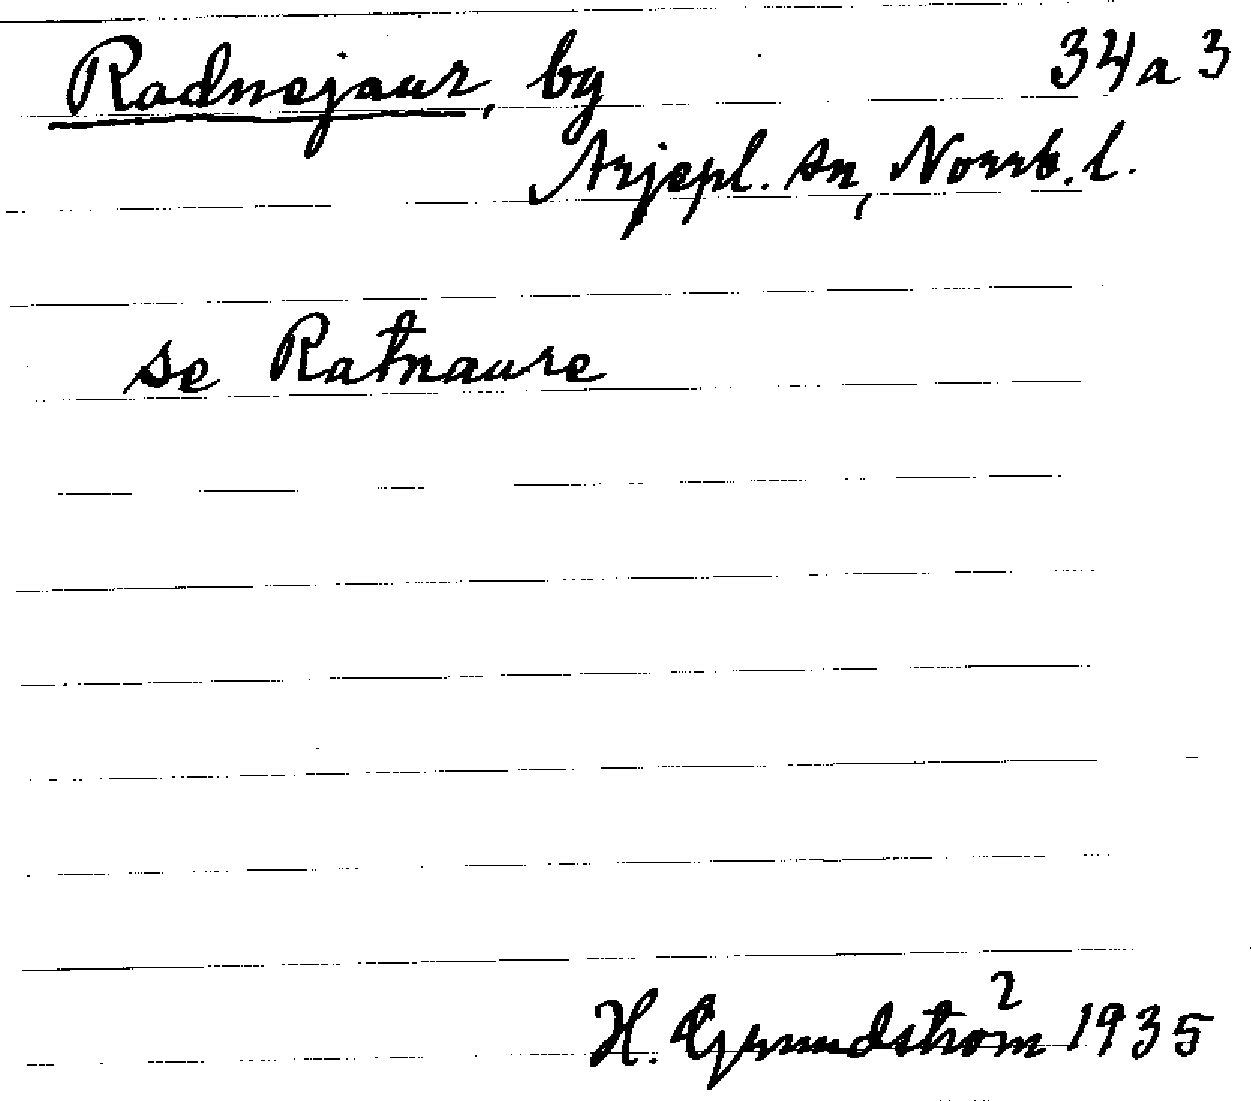 Radnejaur, by 34a3
Arjepl. sn, Norrb. l.
se Ratnaure
H. Grundström 1935